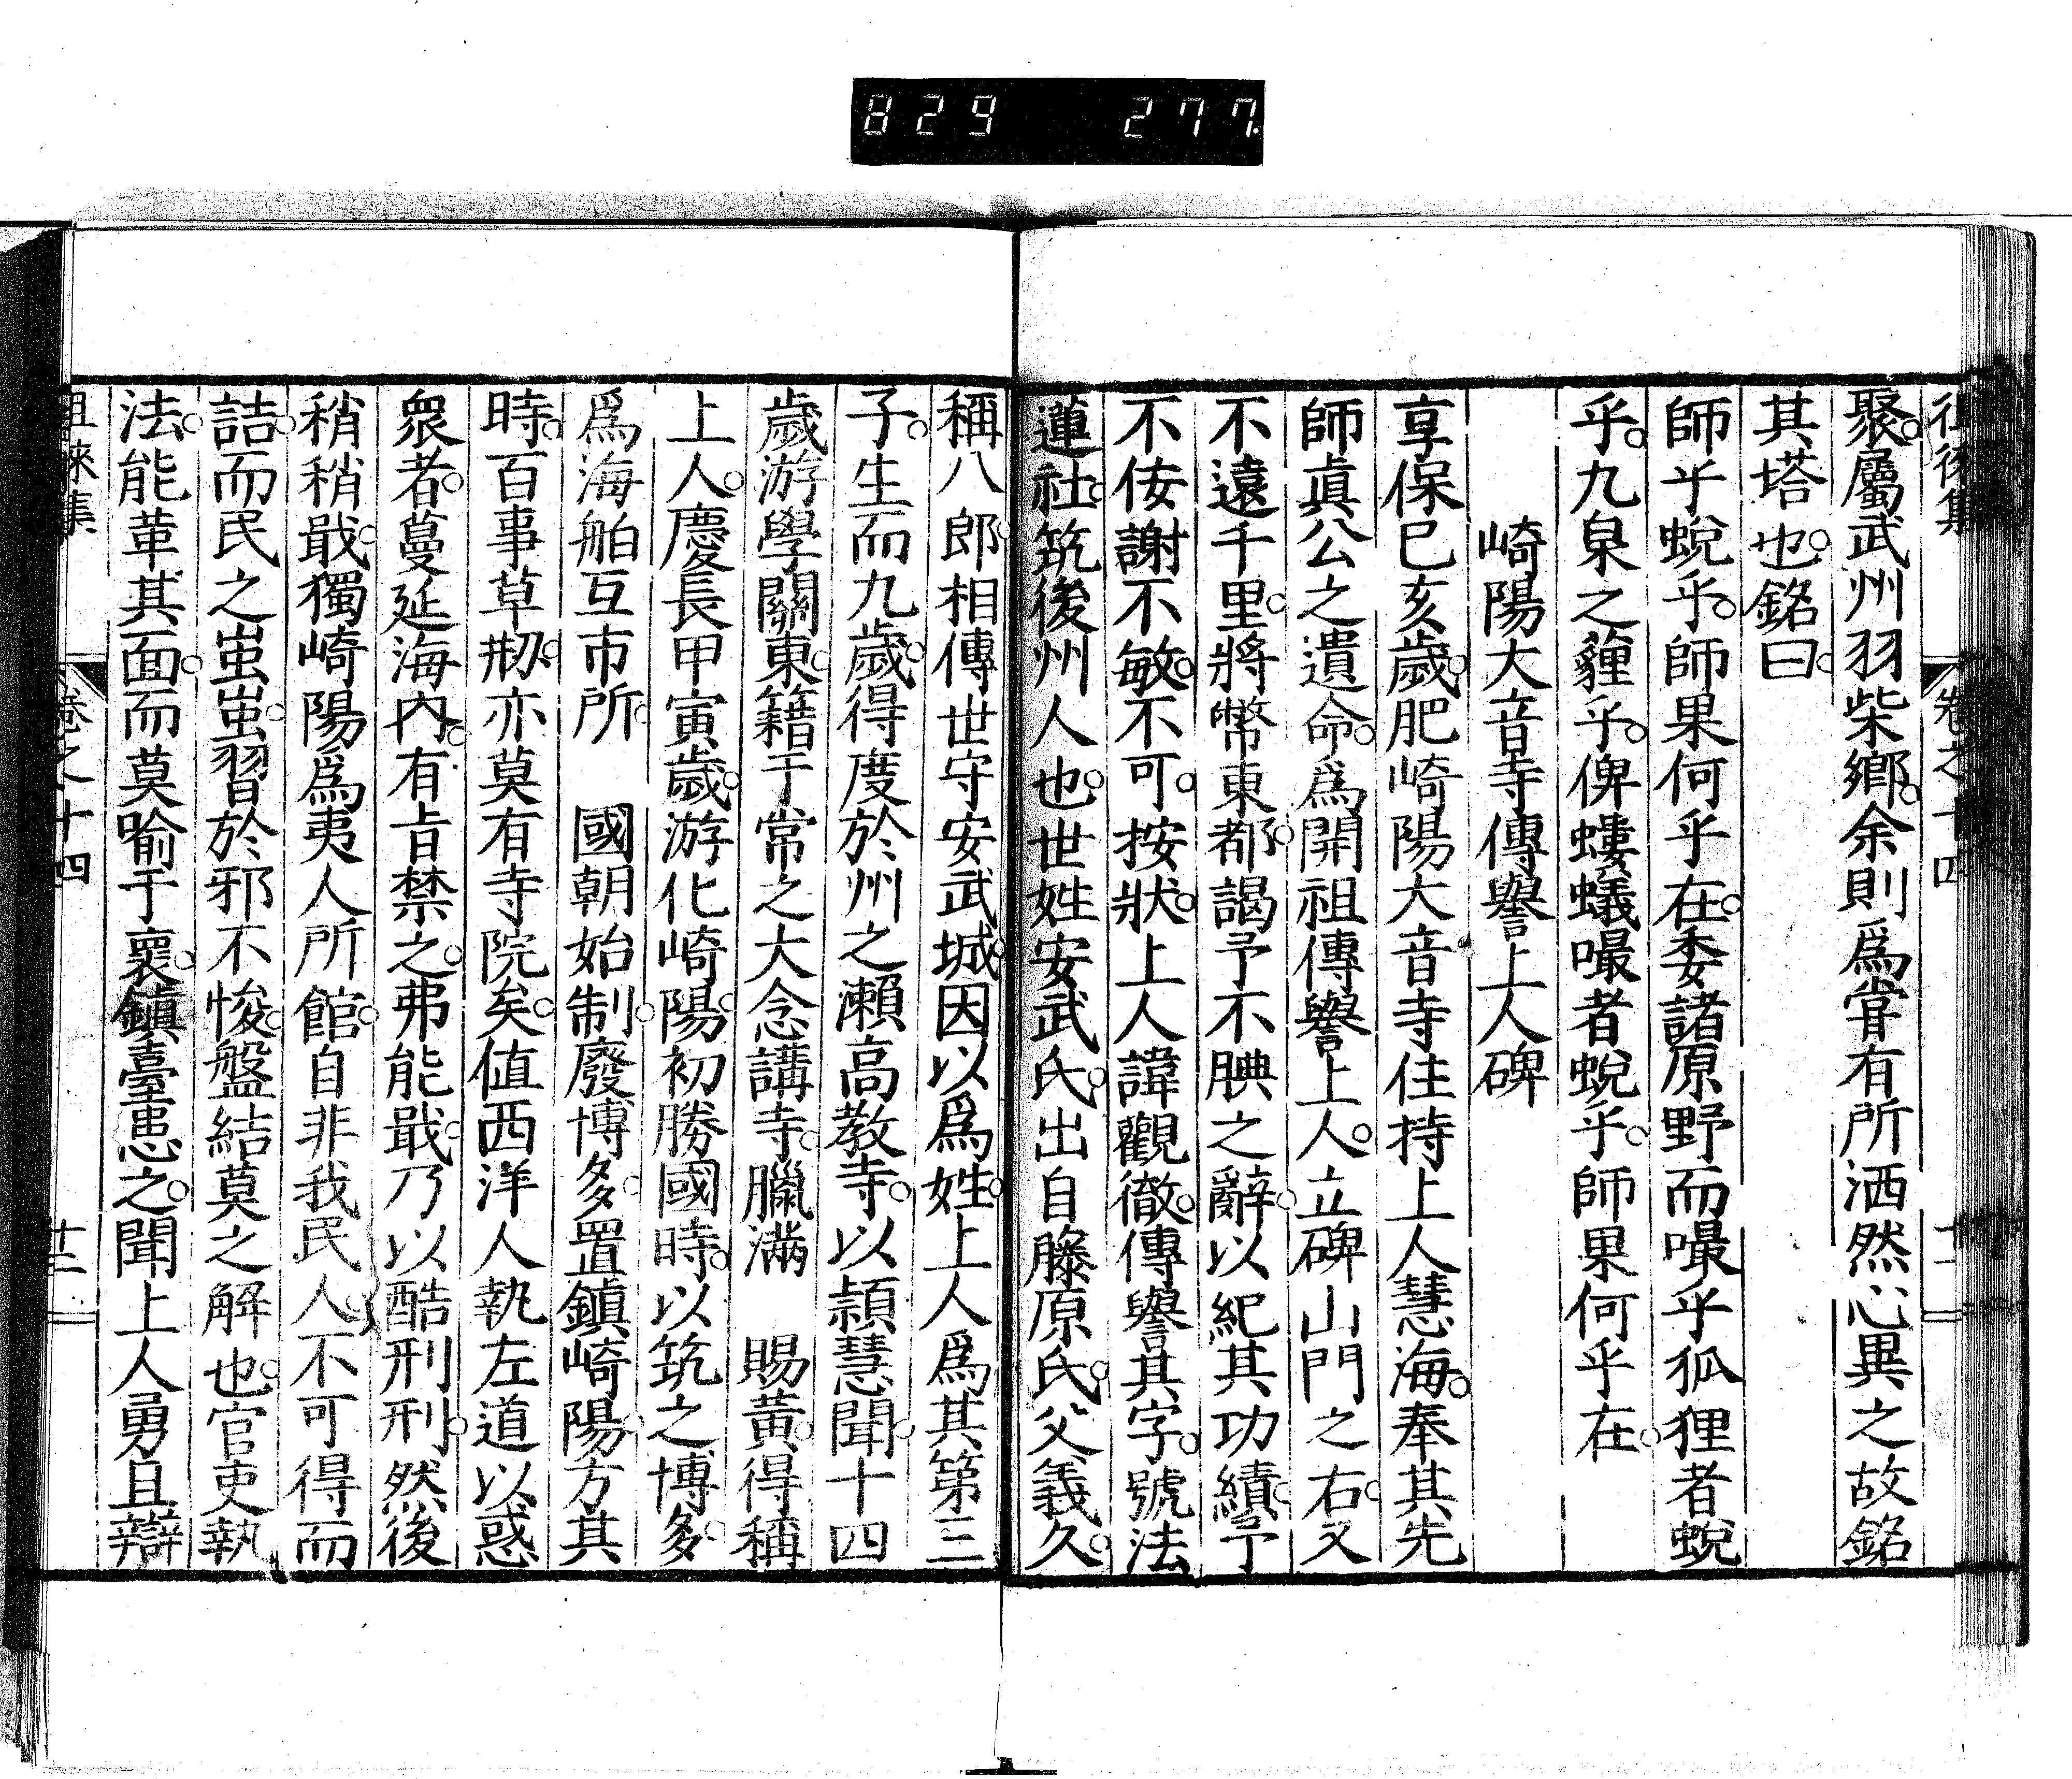 829 277
徂徠集 卷之十四 十二
聚。屬武州羽柴鄉。余則爲甞有所洒然心異之故銘
其塔也。銘曰。
師乎蛻乎。師果何乎在。委諸原野而嘬乎狐狸者蛻
乎。九泉之薶乎。俾螻蟻嘬者蛻乎。師果何乎在。
崎陽大音寺傳譽上人碑
享保己亥歲。肥崎陽大音寺住持上人慧海。奉其先
師眞公之遺命。爲開祖傳譽上人。立碑山門之右。又
不遠千里。將幣東都。謁予不腆之辭。以紀其功績。予
不佞謝不敏。不可。按狀。上人諱觀徹。傳譽其字。號法
蓮社。筑後州人也。世姓安武氏。出自藤原氏。父義久。
稱八郎。相傳世守安武城。因以爲姓。上人爲其第三
子。生而九歲。得度於州之瀨高教寺。以頴慧聞。十四
歲游學關東。籍于常之大念講寺。臘滿 賜黃。得稱
上人。慶長甲寅歲。游化崎陽。初勝國時。以筑之博多。
爲海舶互市所。 國朝始制。廢博多。置鎮崎陽。方其
時。百事草剏。亦莫有寺院矣。值西洋人執左道以惑
衆者。蔓延海內。有旨禁之。弗能戢。乃以酷刑刑。然後
稍稍戢。獨崎陽爲夷人所館。自非我民人。不可得而
詰。而民之蚩蚩。習於邪不悛。盤結莫之解也。官吏執
法。能革其面。而莫喻于衷。鎮臺患之。聞上人勇且辯
徂徠集 卷之十四 十三